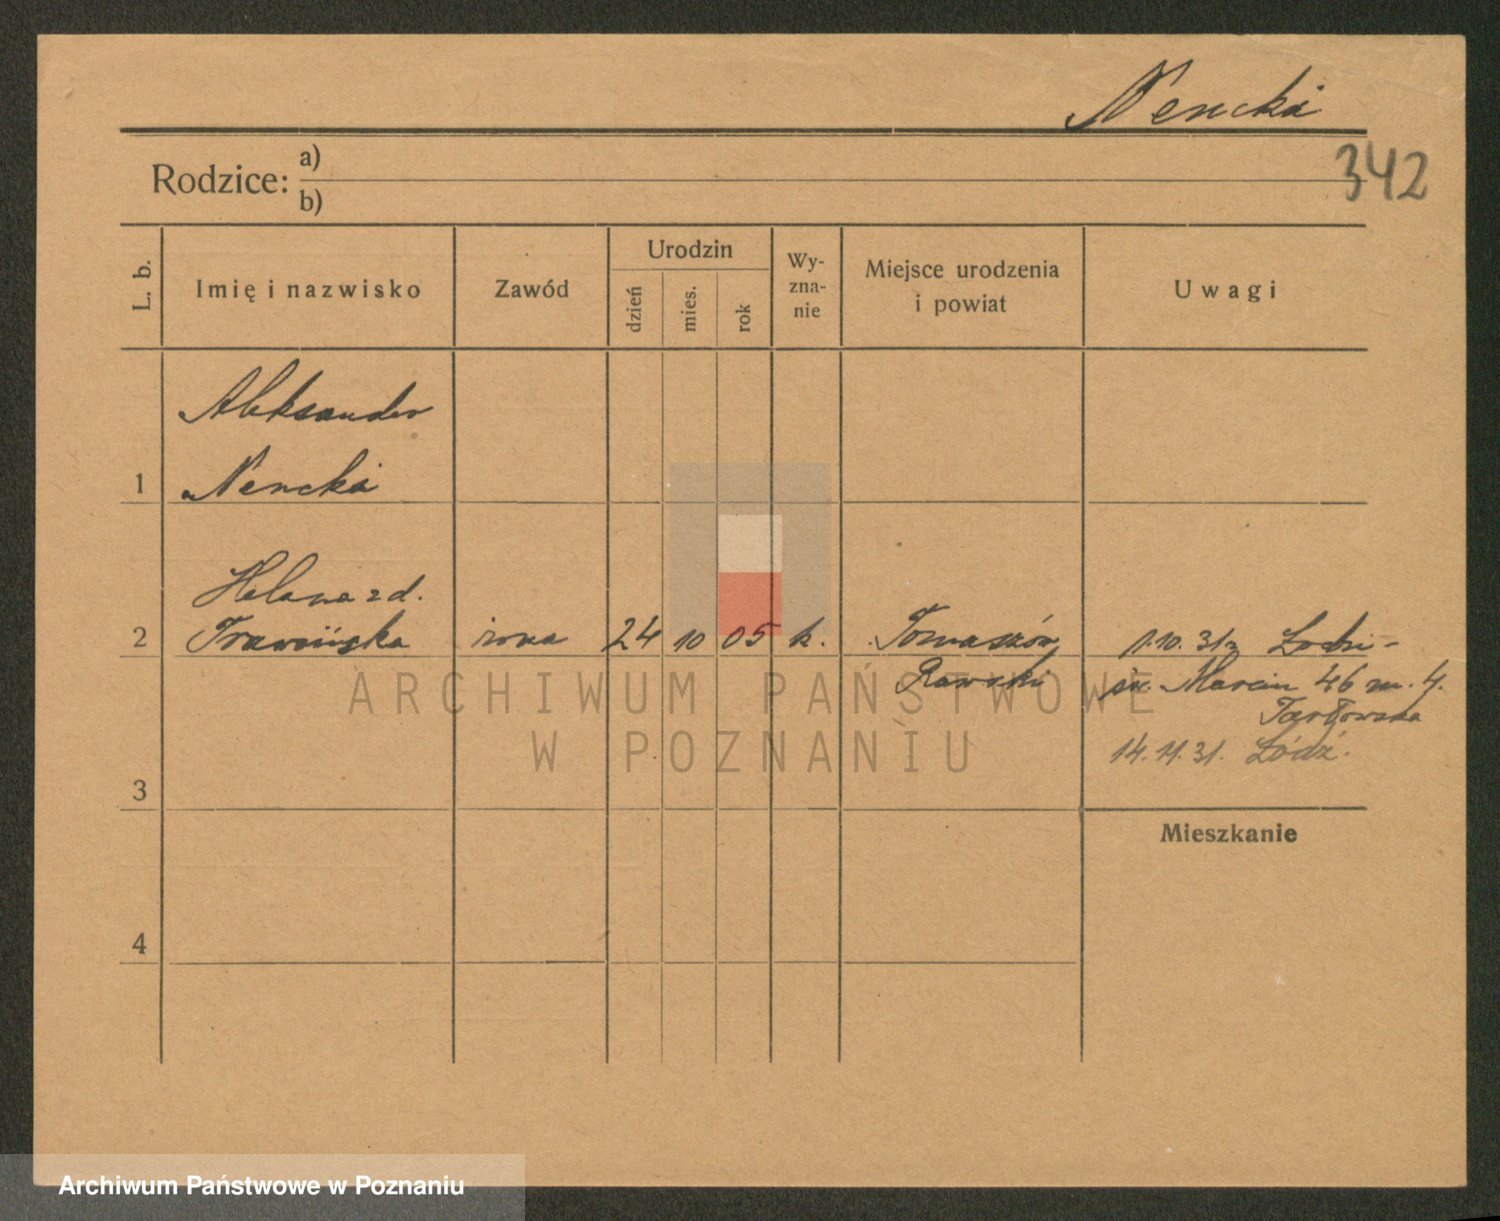 Nencki
342
Rodzice: a)
b)
L. b.
Imię i nazwisko
Zawód
Urodzin
dzień
mies.
rok
Wy-
zna-
nie
Miejsce urodzenia
i powiat
Uwagi
Aleksander
1 Nencki
Helena z d.
2 żona 24 10 05 k. Tomaszów 1.10.31 z Łodzi -
Rawski św. Marcin 46 m. 4.
14.11.31. Łódź.
3
Mieszkanie
4
ARCHIWUM PAŃSTWOWE
W POZNANIU
Archiwum Państwowe w Poznaniu